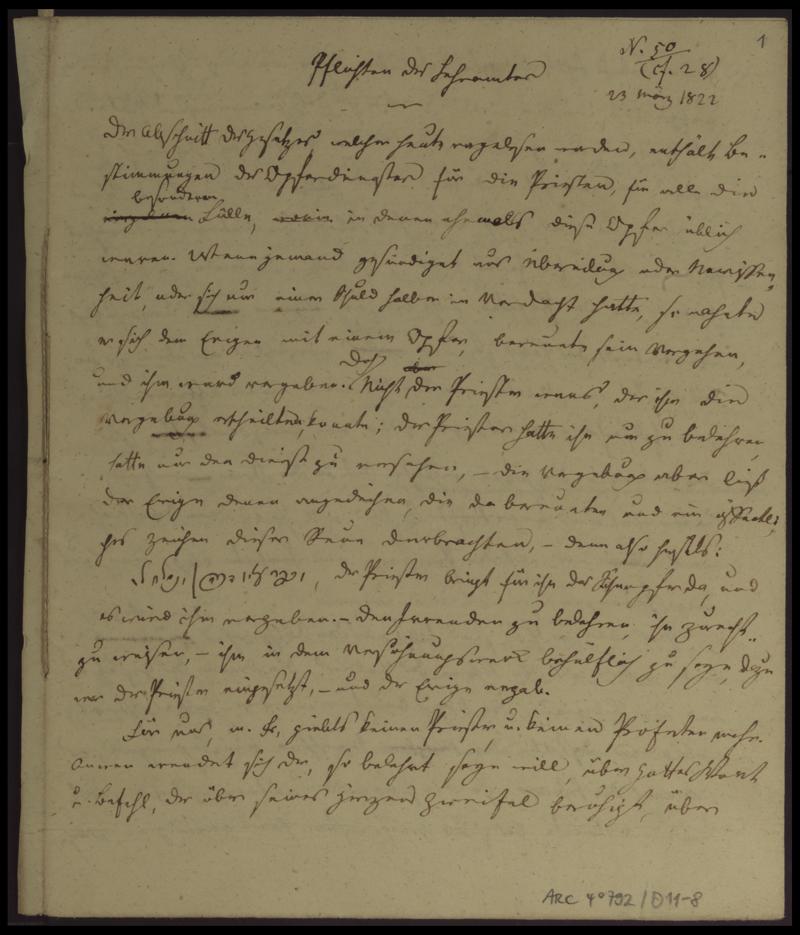 1
N. 50
(cf. 28)
23 März 1822
Pflichten des Lehramtes
Der Abschnitt des Gesetzes, welcher heute vorgelesen worden, enthält Be-
stimmungen des Opferdienstes für die Priester, für alle die
besonderen
einzelnen Fälle, in denen ehemals diese Opfer üblich
waren. Wenn jemand gesündiget aus Übereilung oder Unwissen-
heit, oder sich nur einer Schuld halber in Verdacht hatte, so nahete
er sich dem Ewigen mit einem Opfer, bereuete sein Vergehen,
und ihm ward vergeben. Doch Nicht der Priester war's, der ihm die
Vergebung ertheilen konnte; der Priester hatte ihn nur zu belehren,
hatte nur den Dienst zu versehen, – die Vergebung aber ließ
der Ewige denen angedeihen, die da bereueten und ein öffentli-
ches Zeichen dieser Reue darbrachten, – denn also heißt's:
der Priester bringt für ihn das Sühnopfer da, und
es wird ihm vergeben. – Den Irrenden zu belehren, ihn zurecht-
zu weisen, – ihm in dem Versöhnungswerk behülflich zu seyn, dazu
war der Priester eingesetzt, – und der Ewige vergab.
Für uns, m. Fr., giebt's keinen Priester, u. keinen Profeten mehr.
wendet sich der, so belehrt seyn will, über Gottes Wort
u. Befehl, der über seines Herzens Zweifel beruhigt, über
ARC 4° 792 / D11-8